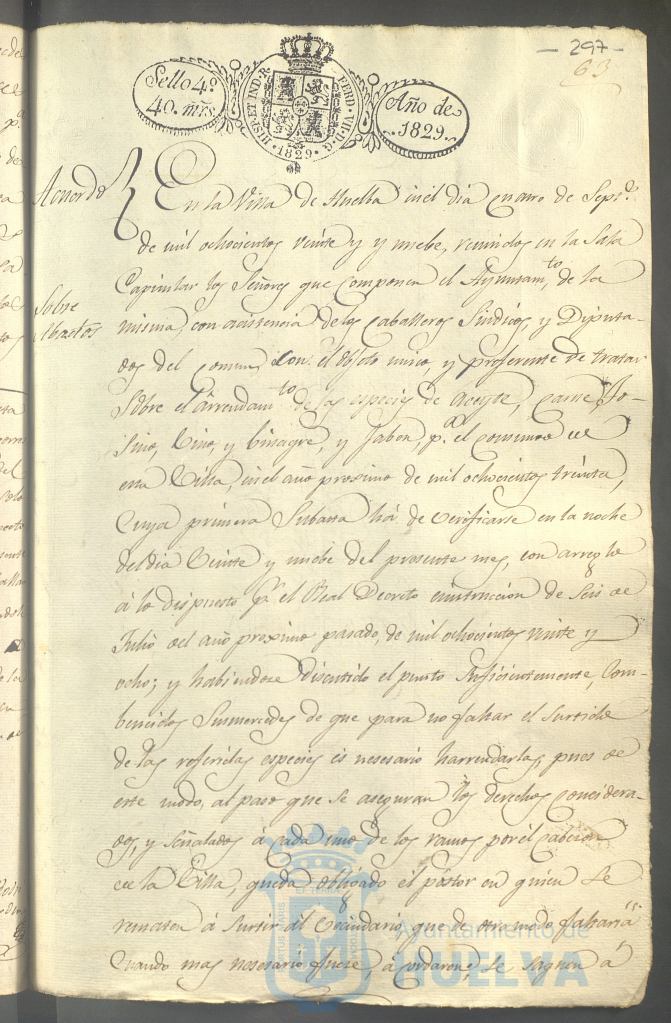 - 297 -
63
Sello 4º
40. mrs
HISP. ET IND. R. FERD. VII. D. G.
1829
Año de
1829.
Acuerdo
En la Villa de Huelba in el dia cuatro de Sepre.
de mil ochocientos veinte y y nuebe, reunidos en la Sala
Capitular los Señores que componen el Ayuntamto. de la
Sobre
Abastos
misma, con asistencia de los Caballeros Sindicos, y Diputa-
dos del comun, con el objeto unico, y preferente de tratar
sobre el Arrendamto. de las especies de Aceyte, carne, To-
sino, Vino, y binagre, y Jabon, pa. el consumo de
esta Villa, in el año proximo de mil ochocientos treinta,
cuya primera Subasta há de verificarse en la noche
del dia Veinte y nuebe del presente mes, con arreglo
á lo dispuesto pr. el Real Decreto é instruccion de Seis de
Julio del año proximo pasado, de mil ochocientos veinte y
ocho; y habiendose discutido el punto suficientemente, Com-
bencidos Susmercedes de que para no faltar el Surtido
de las referidas especies és nesesario harrendarlas, pues de
este modo, al paso que se aseguran los derechos considera-
dos, y señalados á cada uno de los ramos por él cabeson
de la Villa, queda obligado el postor en quien se
rematen á surtir al Vecindario, que de otro modo faltaria
cuando mas nesesario fuese, acordaron, se saquen á
Ayuntamiento de
HUELVA